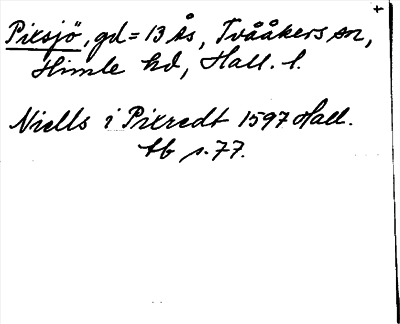 +
Pixsjö, gd = 13 ås, Tvååkers sn,
Himle hd, Hall. l.
Niells i Pixredt 1597 Hall.
tb s. 77.